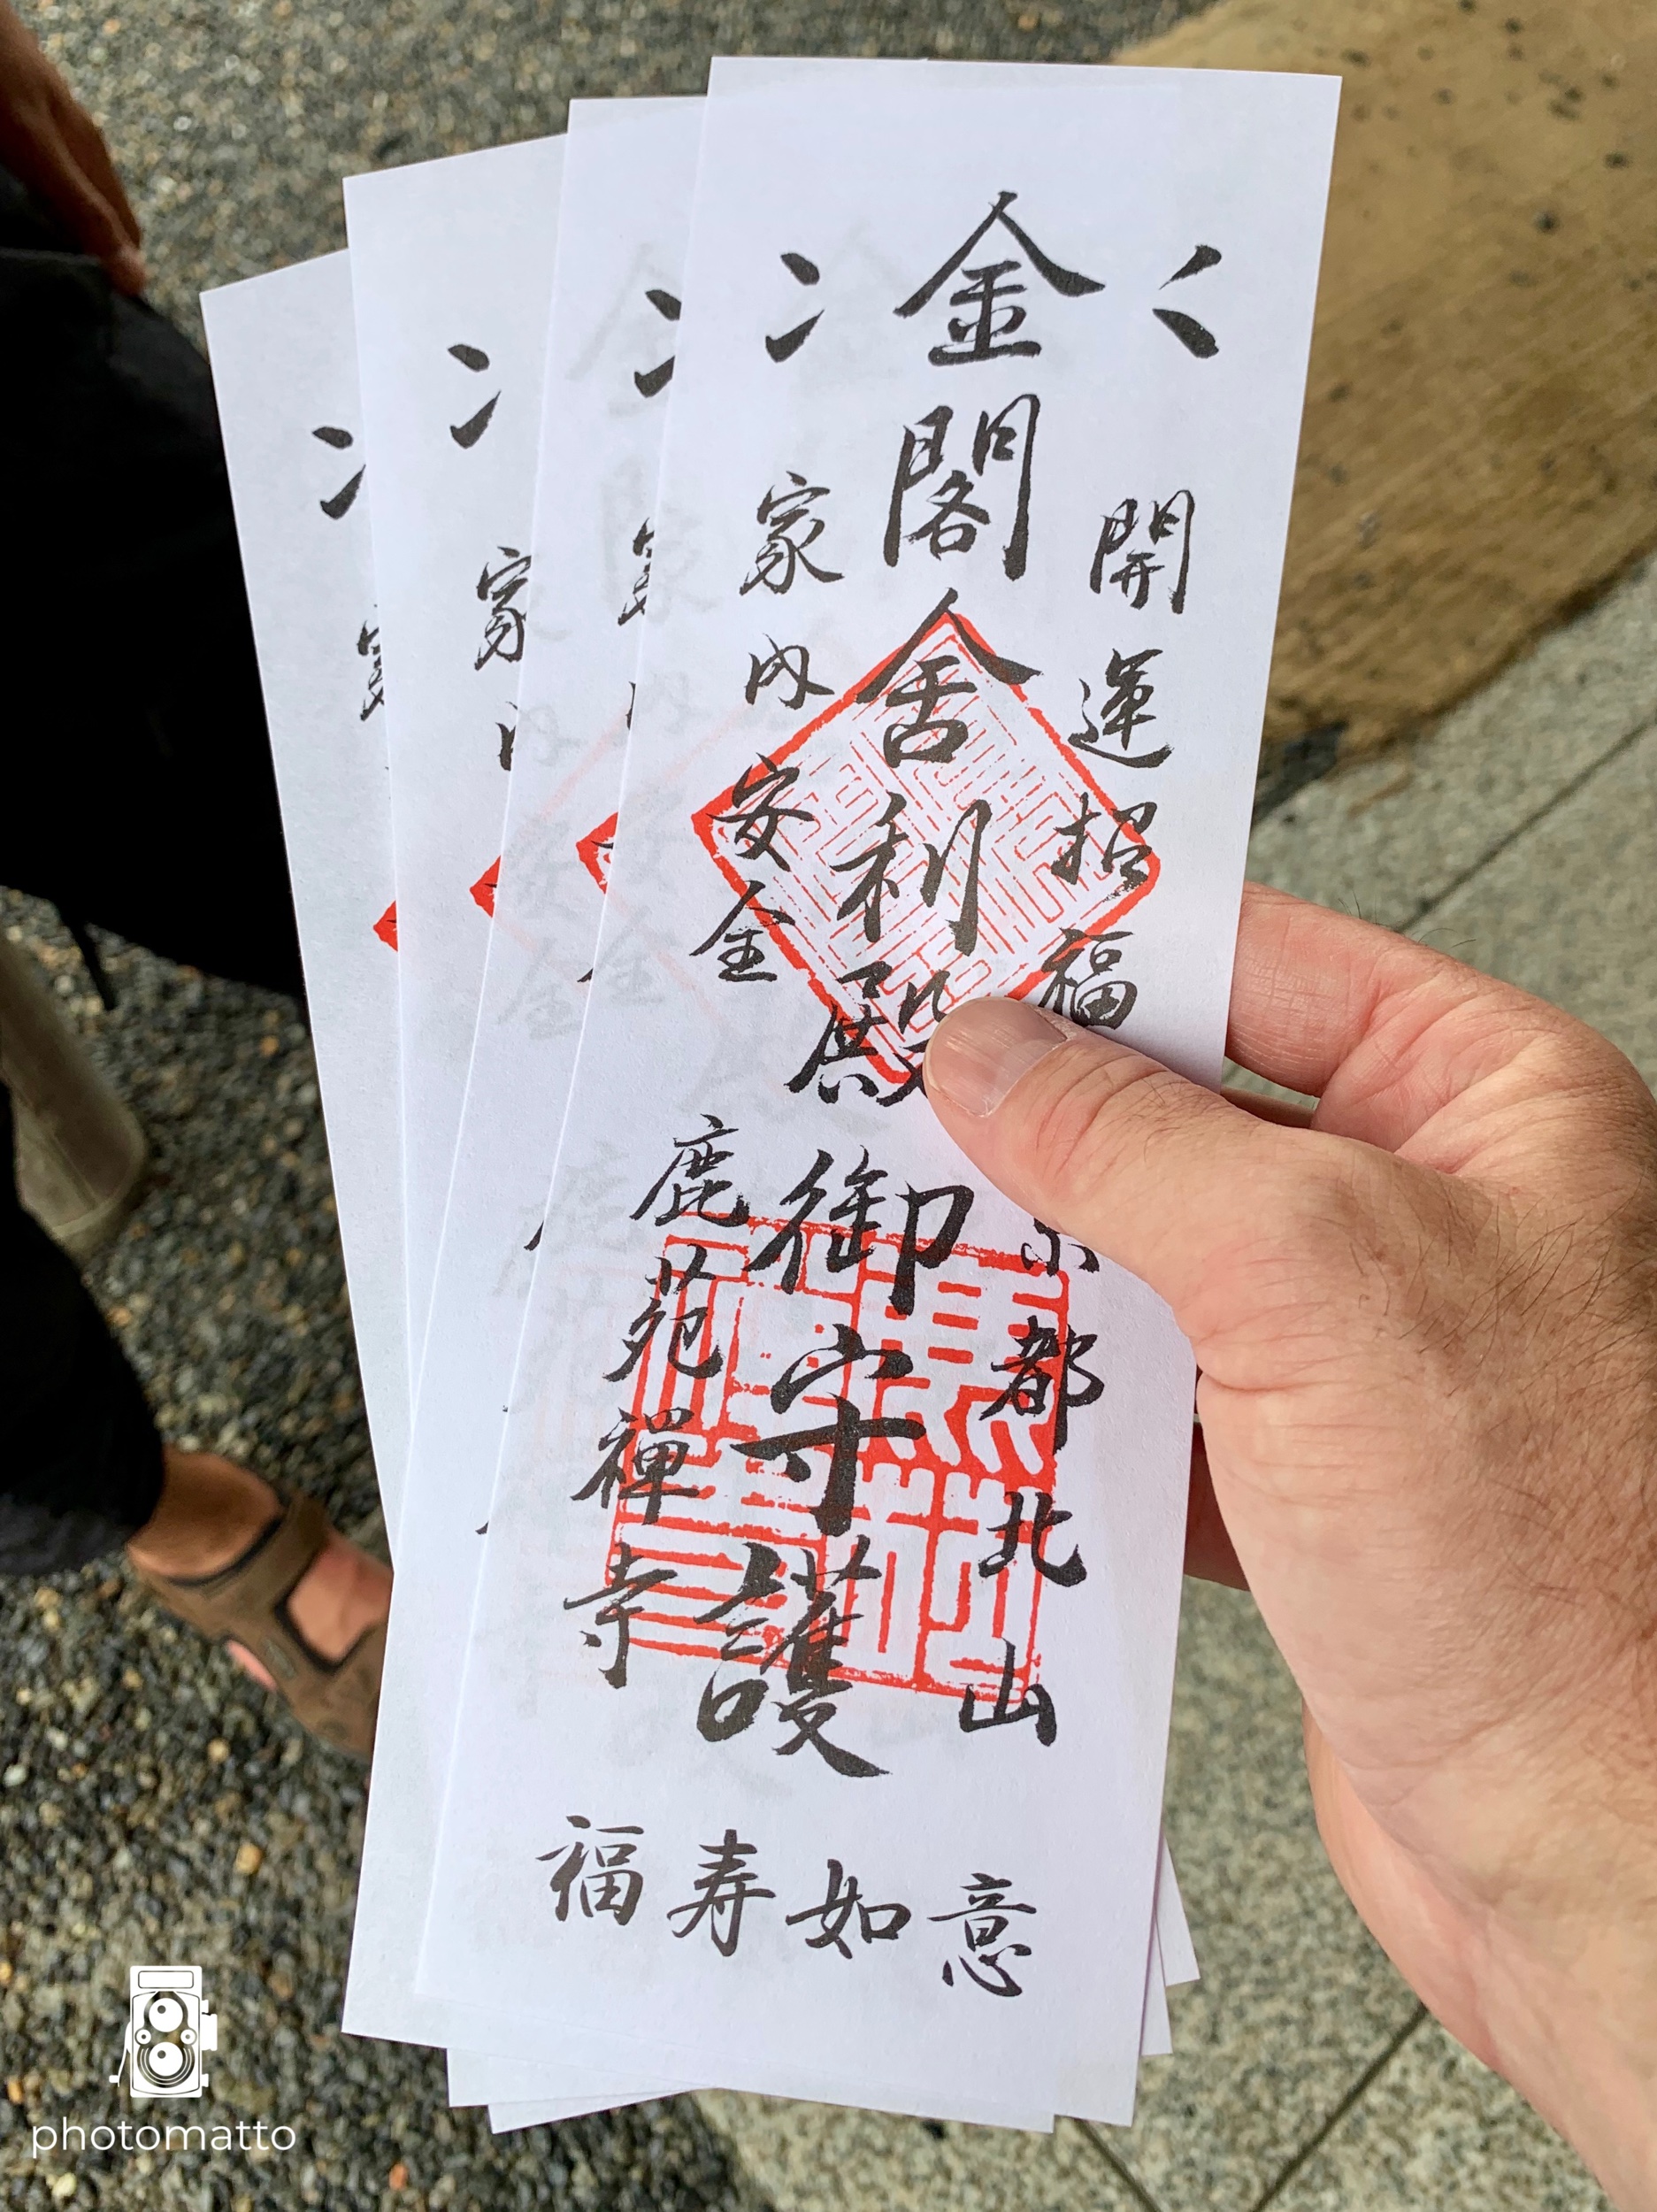 開運招福
金閣舎利殿御守護
家内安全
京都北山
鹿苑禅寺
福寿如意
家内
家
photomatto